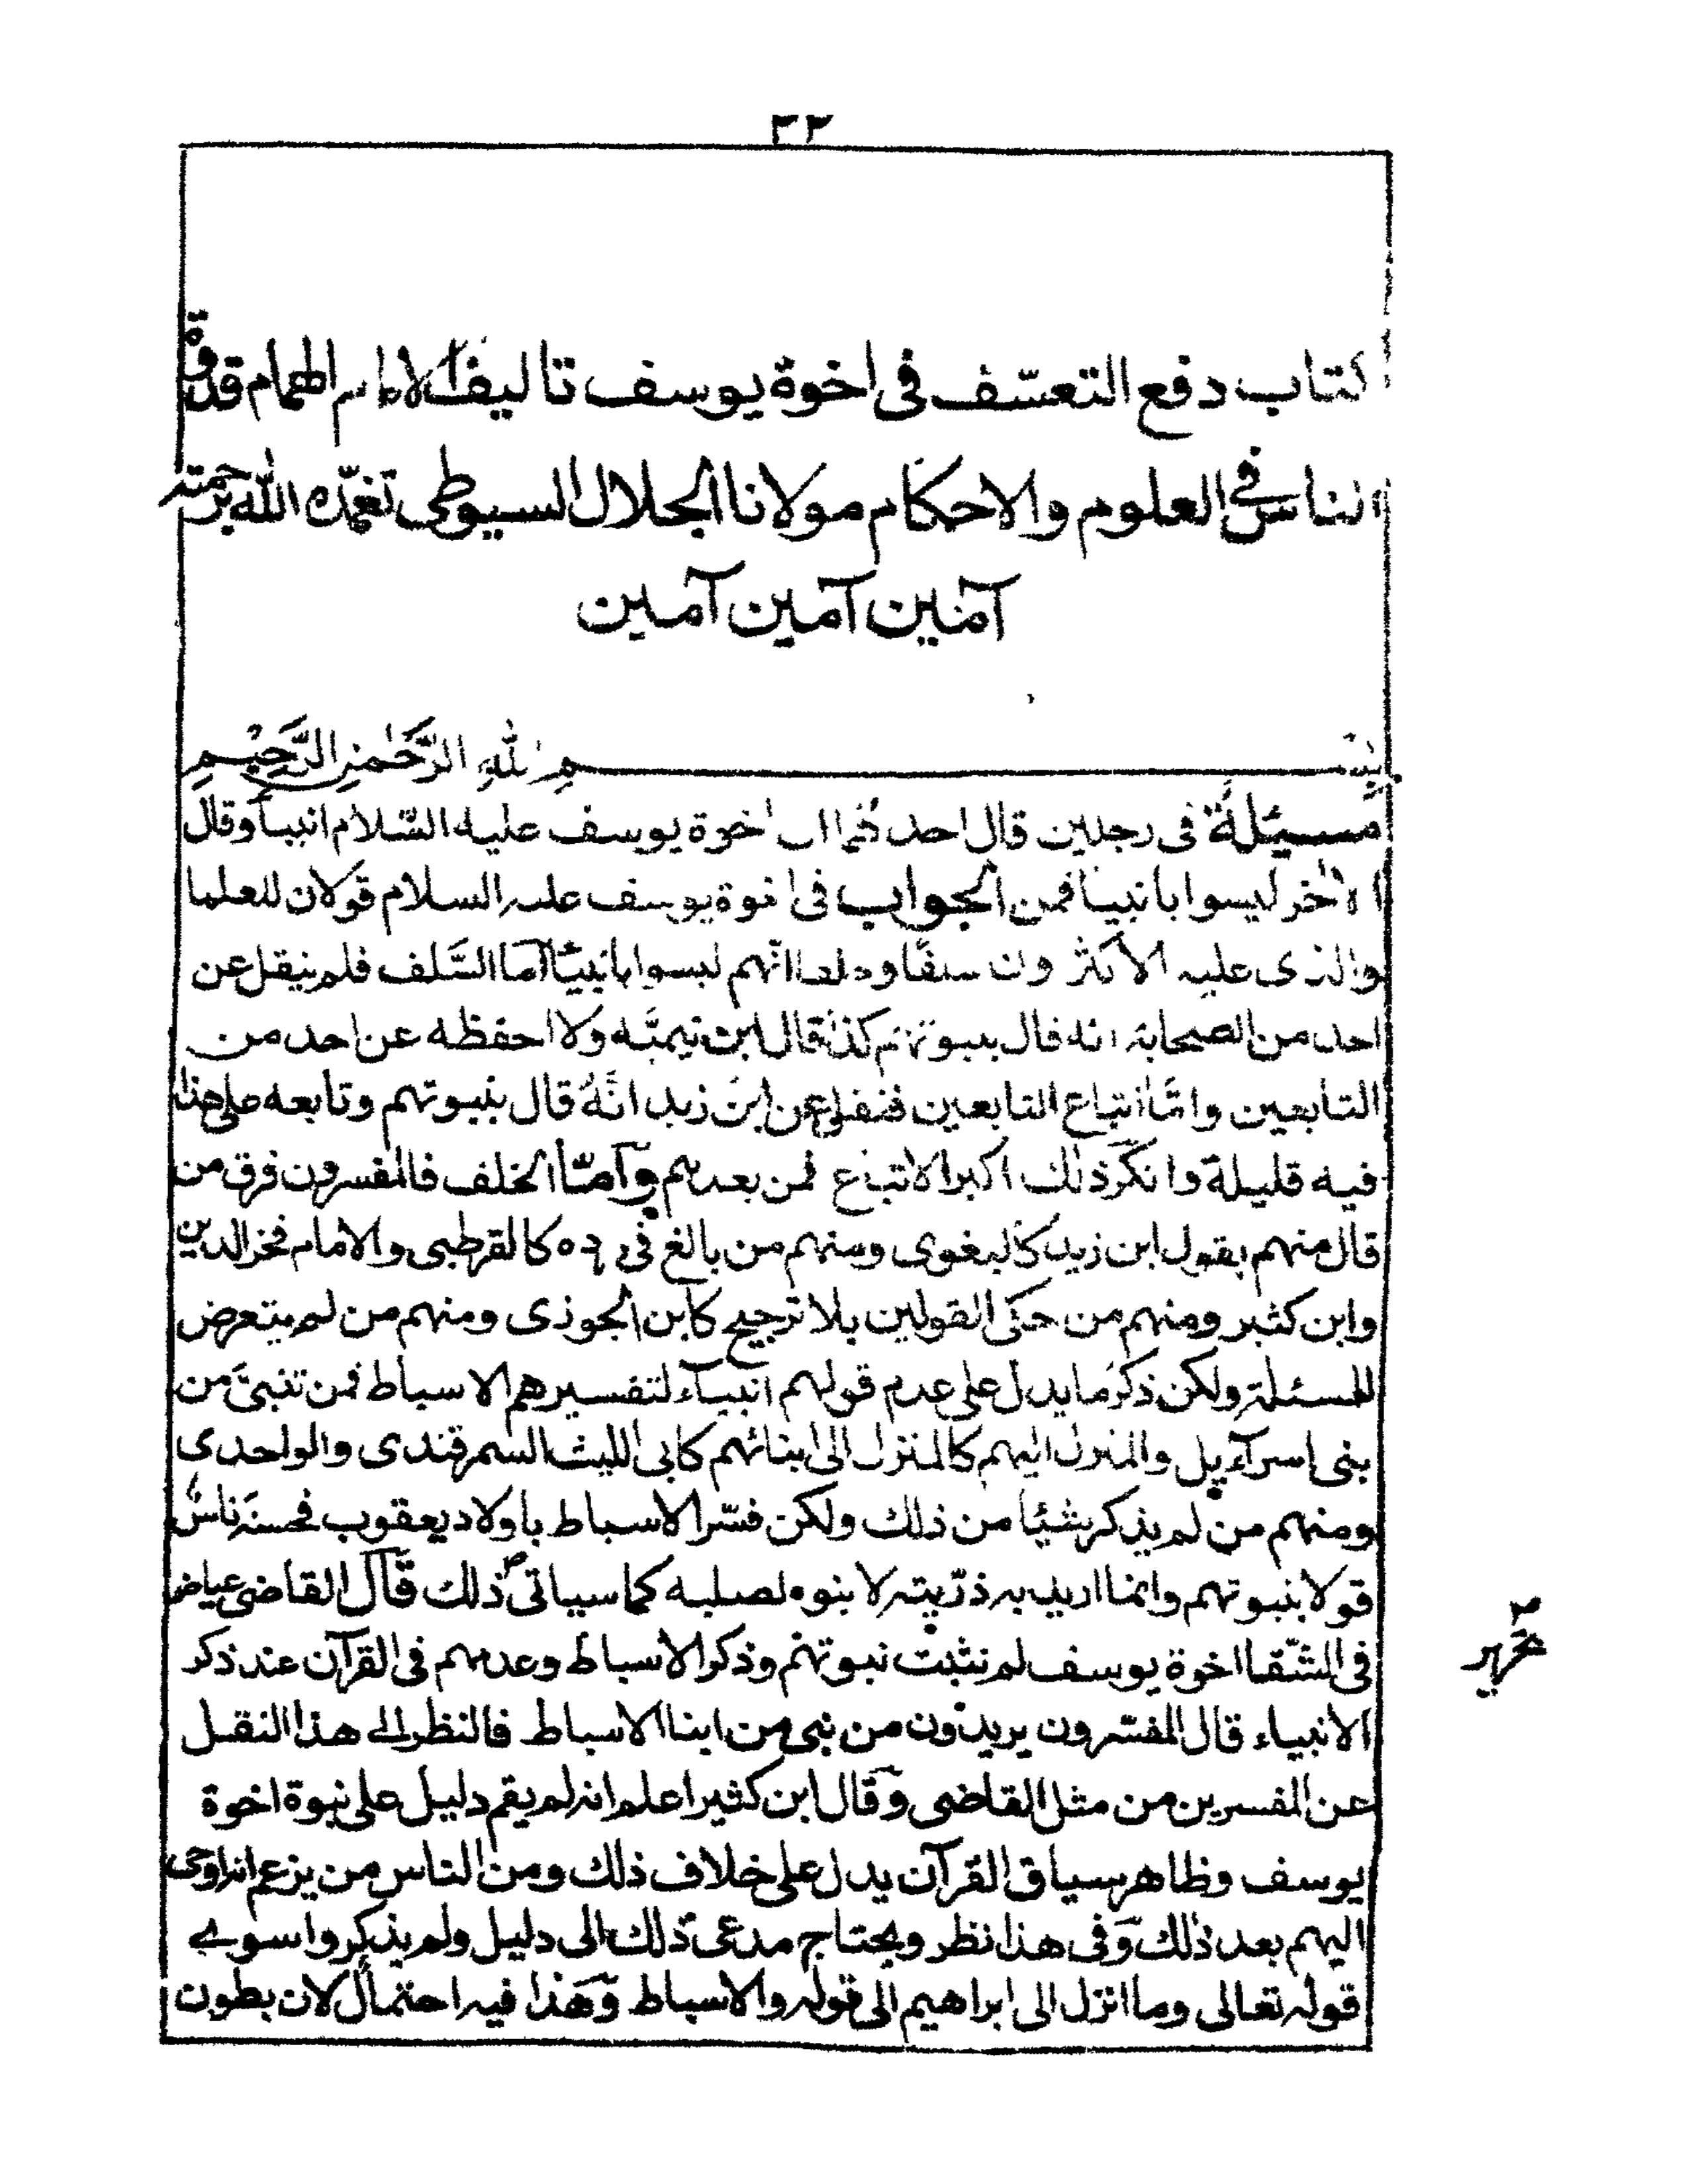 ٣٢
كتاب دفع التعسّف فى اخوة يوسف تاليف الامام الهمام قدوة
الناس فى العلوم والاحكام مولانا الجلال السيوطى تغمّده الله برحمته
آمين آمين آمين
بسم الله الرَّحْمٰنِ الرَّحِيْمِ
مسئلة فى رجلين قال احدهما ان اخوة يوسف عليه السّلام انبيآ وقال
الاخر ليسوا بانبيا فمن الجواب فى اخوة يوسف عليه السلام قولان للعلما
والذى عليه الأكثرون سلفًا وخلفا انّهم ليسوا بانبيآ امّا السَّلف فلم ينقل عن
احد من الصحابة انه قال بنبوتهم كذا قال ابن تيميَّه ولا احفظه عن احد من
التابعين وامَّا اتباع التابعين فنقل عن ابن زيد انَّهُ قال بنبوتهم وتابعه على هذا
فيه قليلة وانكر ذلك اكبر الاتباع فمن بعدهم وآمّا الخلف فالمفسرون فرق من
قال منهم بقول ابن زيد كالبغوى ومنهم من بالغ فى رده كالقرطبى والامام فخر الدين
وابن كثير ومنهم من حكى القولين بلا ترجيح كابن الجوذى ومنهم من لم يتعرض
للمسئلة ولكن ذكر ما يدل على عدم قولهم انبيآء لتفسيرهم الاسباط فمن تنبىَّ من
بنى اسرآءيل والمنزل اليهم كالمنزل الى ابنائهم كابى الليث السمرقندى والواحدى
ومنهم من لم يذكر شيئا من ذلك ولكن فسّر الاسباط باولاد يعقوب فحسبه ناسٌ
قولا بنبوتهم وانما اريد به ذرّيته لا بنوه لصلبه كما سياتى ذلك قال القاضى عياض
فى الشّفا اخوة يوسف لم تثبت نبوتهم وذكر الاسباط وعدهم فى القرآن عند ذكر
الانبياء قال المفسّرون يريدون من نبى من ابنا الاسباط فالنظر الے هذا النقل
عن المفسرين من مثل القاضى وقال ابن كثير اعلم انه لم يقم دليل على نبوة اخوة
يوسف وظاهر سياق القرآن يدل على خلاف ذلك ومن الناس من يزعم انه اوحى
اليهم بعد ذلك وفى هذا نظر ويحتاج مدعى ذلك الى دليل ولم يذكروا سوے
قوله تعالى وما انزل الى ابراهيم الى قوله والاسباط وهذا فيه احتمال لان بطون
تحرير